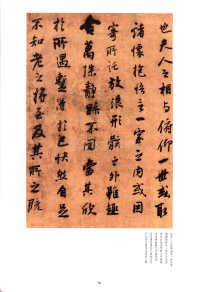 也夫人之相與俯仰一世或取
諸懷抱悟言一室之内或因
寄所託放浪形骸之外雖趣
舍萬殊靜躁不同當其欣
於所遇暫得於己快然自足
不知老之將至及其所之既